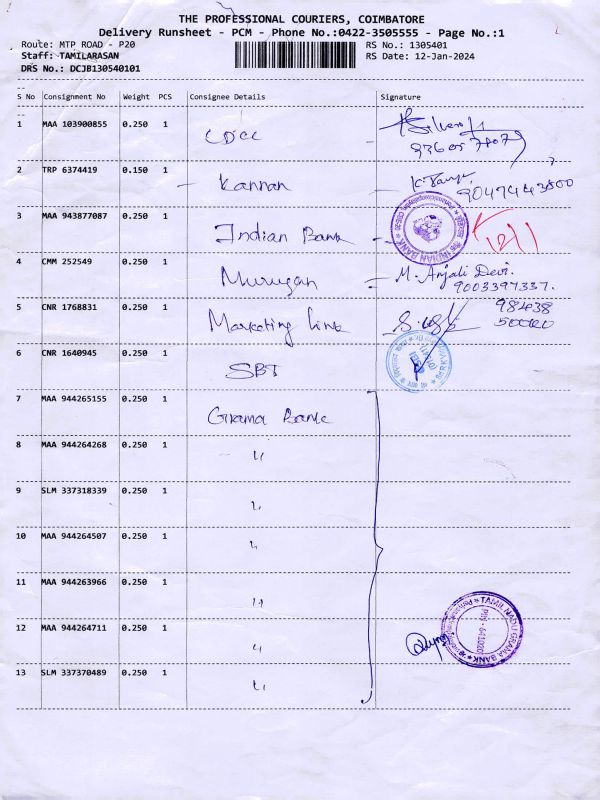 THE PROFESSIONAL COURIERS, COIMBATORE
Delivery Runsheet - PCM - Phone No.:0422-3505555 - Page No.:1
Route: MTP ROAD - P20 RS No.: 1305401
Staff: TAMILARASAN RS Date: 12-Jan-2024
DRS No.: DCJB130540101
S No Consignment No Weight PCS Consignee Details Signature
1 MAA 103900855 0.250 1 CDCC
2 TRP 6374419 0.150 1 - Kannan -
3 MAA 943877087 0.250 1 Indian Bank INDIAN BANK 12/1
4 CMM 252549 0.250 1 Murugan - M. Anjali Devi.
9003397337.
5 CNR 1768831 0.250 1 Marketing Link 98438
50000
6 CNR 1640945 0.250 1 SBI
7 MAA 944265155 0.250 1 Grama Bank
8 MAA 944264268 0.250 1 "
9 SLM 337318339 0.250 1 "
10 MAA 944264507 0.250 1 "
11 MAA 944263966 0.250 1 "
12 MAA 944264711 0.250 1 " TAMIL NADU GRAMA BANK
13 SLM 337370489 0.250 1 "